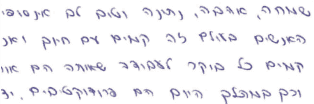 שמחה, אהבה, נתינה וטוב לב אינסופי
האנשים בעולם זה קמים עם חיוך ואנ
קמים כל בוקר לעבודה שאותה הם אוו
וכך במהלך היום הם פרודוקטיבים. יד